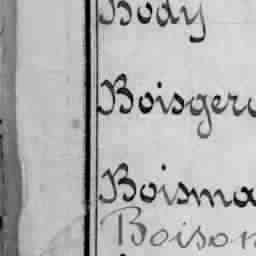 Body
Boisger
Boisma
Boison